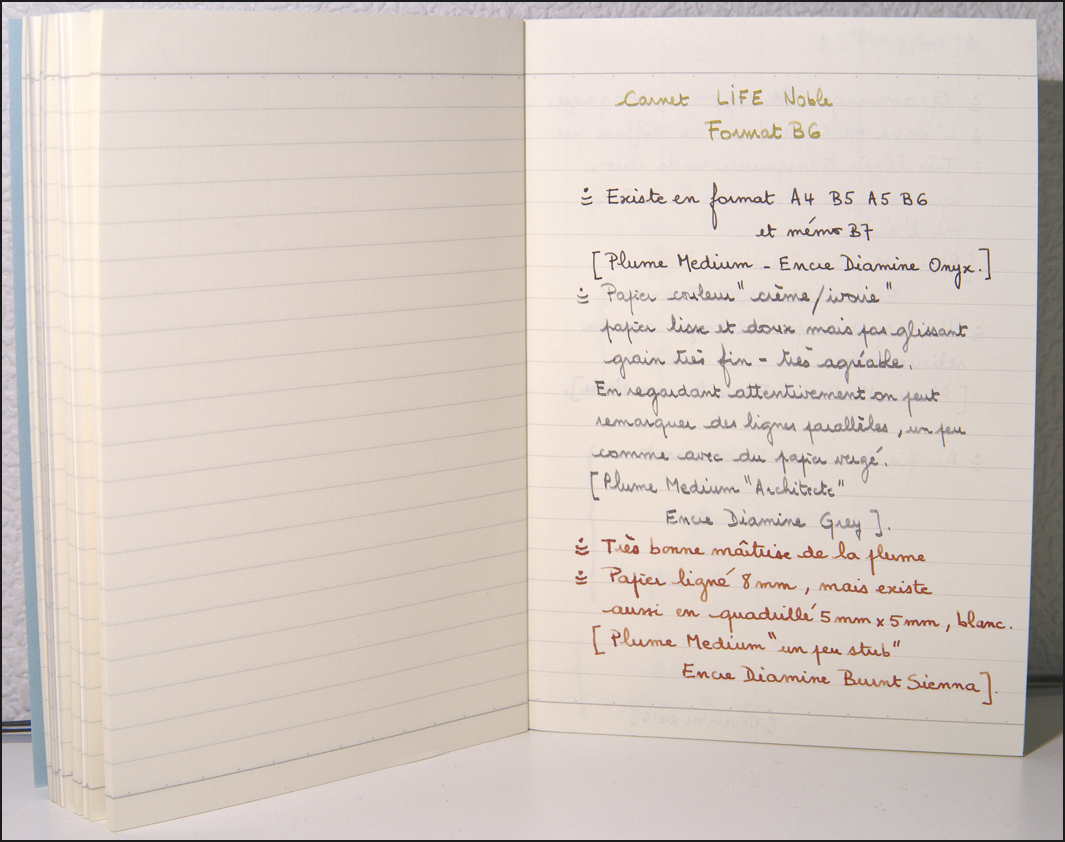 Carnet LiFE Noble
Format B6
Existe en format A4 B5 A5 B6
et mémo B7
[Plume Medium - Encre Diamine Onyx.]
Papier couleur "crème/ivoire"
papier lisse et doux mais pas glissant
grain très fin - très agréable.
En regardant attentivement on peut
remarquer des lignes parallèles, un peu
comme avec du papier vergé.
[Plume Medium "Architecte"
Encre Diamine Grey].
Très bonne maîtrise de la plume
Papier ligné 8mm, mais existe
aussi en quadrillé 5mm x 5mm, blanc.
[Plume Medium "un peu stub"
Encre Diamine Burnt Sienna].